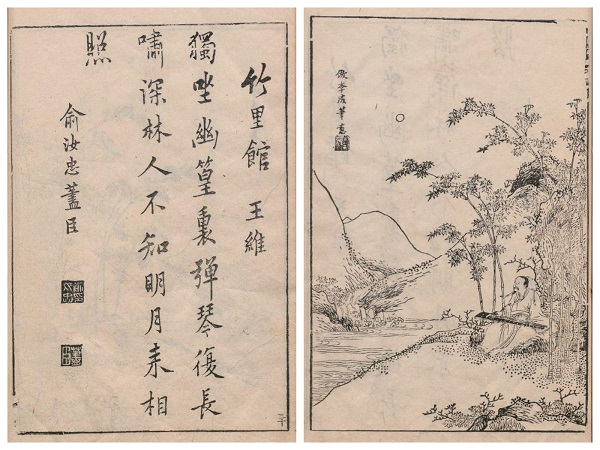 倣李成筆意
竹里館 王維
獨坐幽篁裏彈琴復長
嘯深林人不知明月来相
照
俞汝忠藎臣